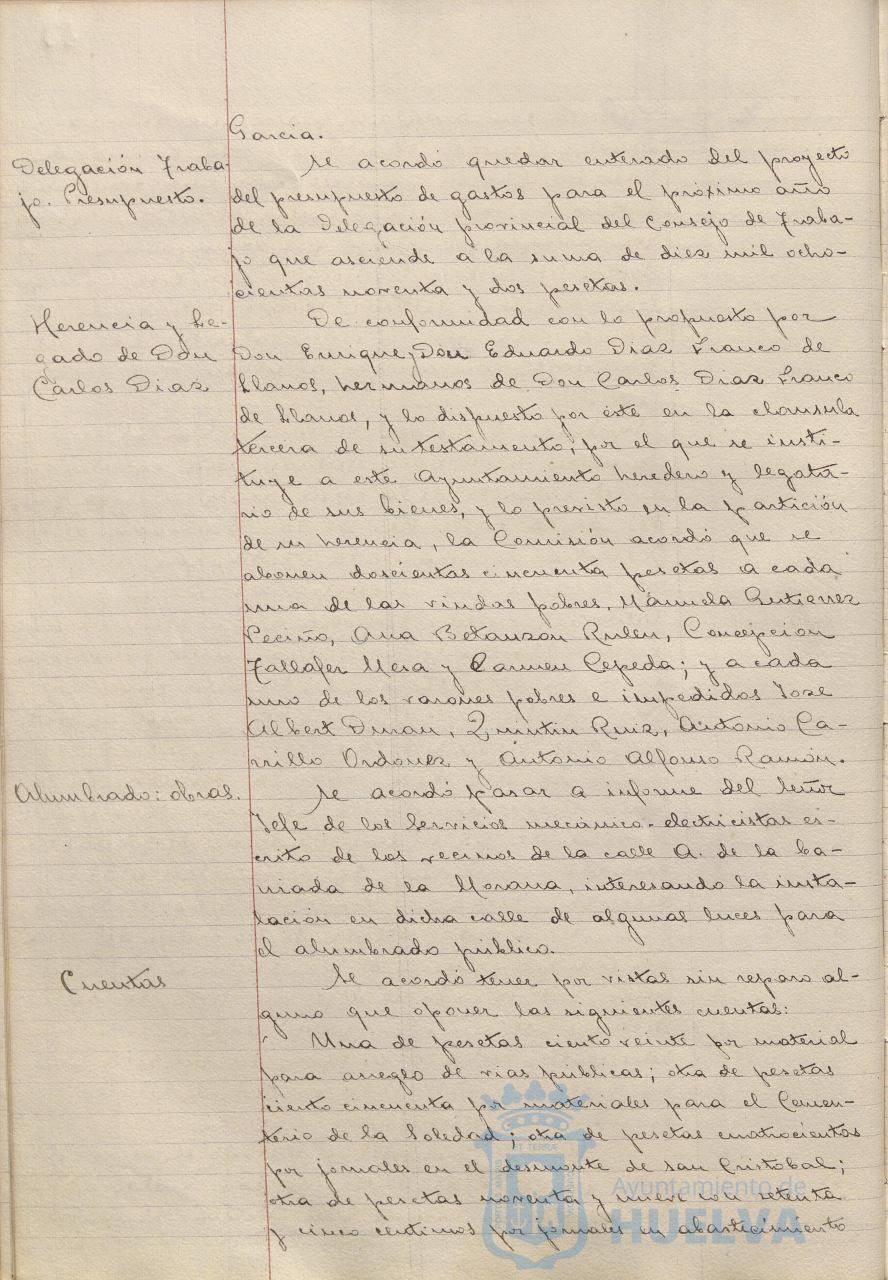 Garcia.
Delegación Traba-
jo. Presupuesto.
Se acordó quedar enterado del proyecto
del presupuesto de gastos para el próximo año
de la Delegación provincial del Consejo de Traba-
jo que asciende a la suma de diez mil ocho-
cientas noventa y dos pesetas.
Herencia y Le-
gado de Don
Carlos Diaz
De conformidad con lo propuesto por
Don Enrique y Don Eduardo Diaz Franco de
Llanos, hermanos de Don Carlos Diaz Franco
de Llanos, y lo dispuesto por éste en la clausula
tercera de su testamento, por el que se insti-
tuye a este Ayuntamiento heredero y legata-
rio de sus bienes, y lo previsto en la partición
de su herencia, la Comisión acordó que se
abonen doscientas cincuenta pesetas a cada
una de las viudas pobres, Manuela Gutierrez
Peciño, Ana Betanzon Rulen, Concepcion
Tallafer Mesa y Carmen Cepeda; y a cada
uno de los varones pobres e impedidos Jose
Albert Duran, Quintin Ruiz, Antonio Ca-
rrillo Ordonez y Antonio Alfonso Ramón.
Alumbrado: obras.
Se acordó pasar a informe del Señor
Jefe de los Servicios mecánico-electricistas es-
crito de los vecinos de la calle A. de la ba-
rriada de la Morana, interesando la insta-
lación en dicha calle de algunas luces para
el alumbrado público.
Cuentas
Se acordó tener por vistas sin reparo al-
guno que oponer las siguientes cuentas:
Una de pesetas ciento veinte por material
para arreglo de vias públicas; otra de pesetas
ciento cincuenta por materiales para el Cemen-
terio de la Soledad; otra de pesetas cuatrocientas
por jornales en el desmonte de san Cristobal;
otra de pesetas noventa y nueve con setenta
y cinco centimos por jornales en abastecimiento
Ayuntamiento de
HUELVA